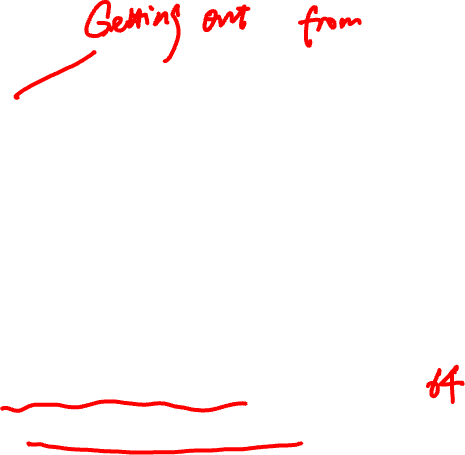 Getting out from
64